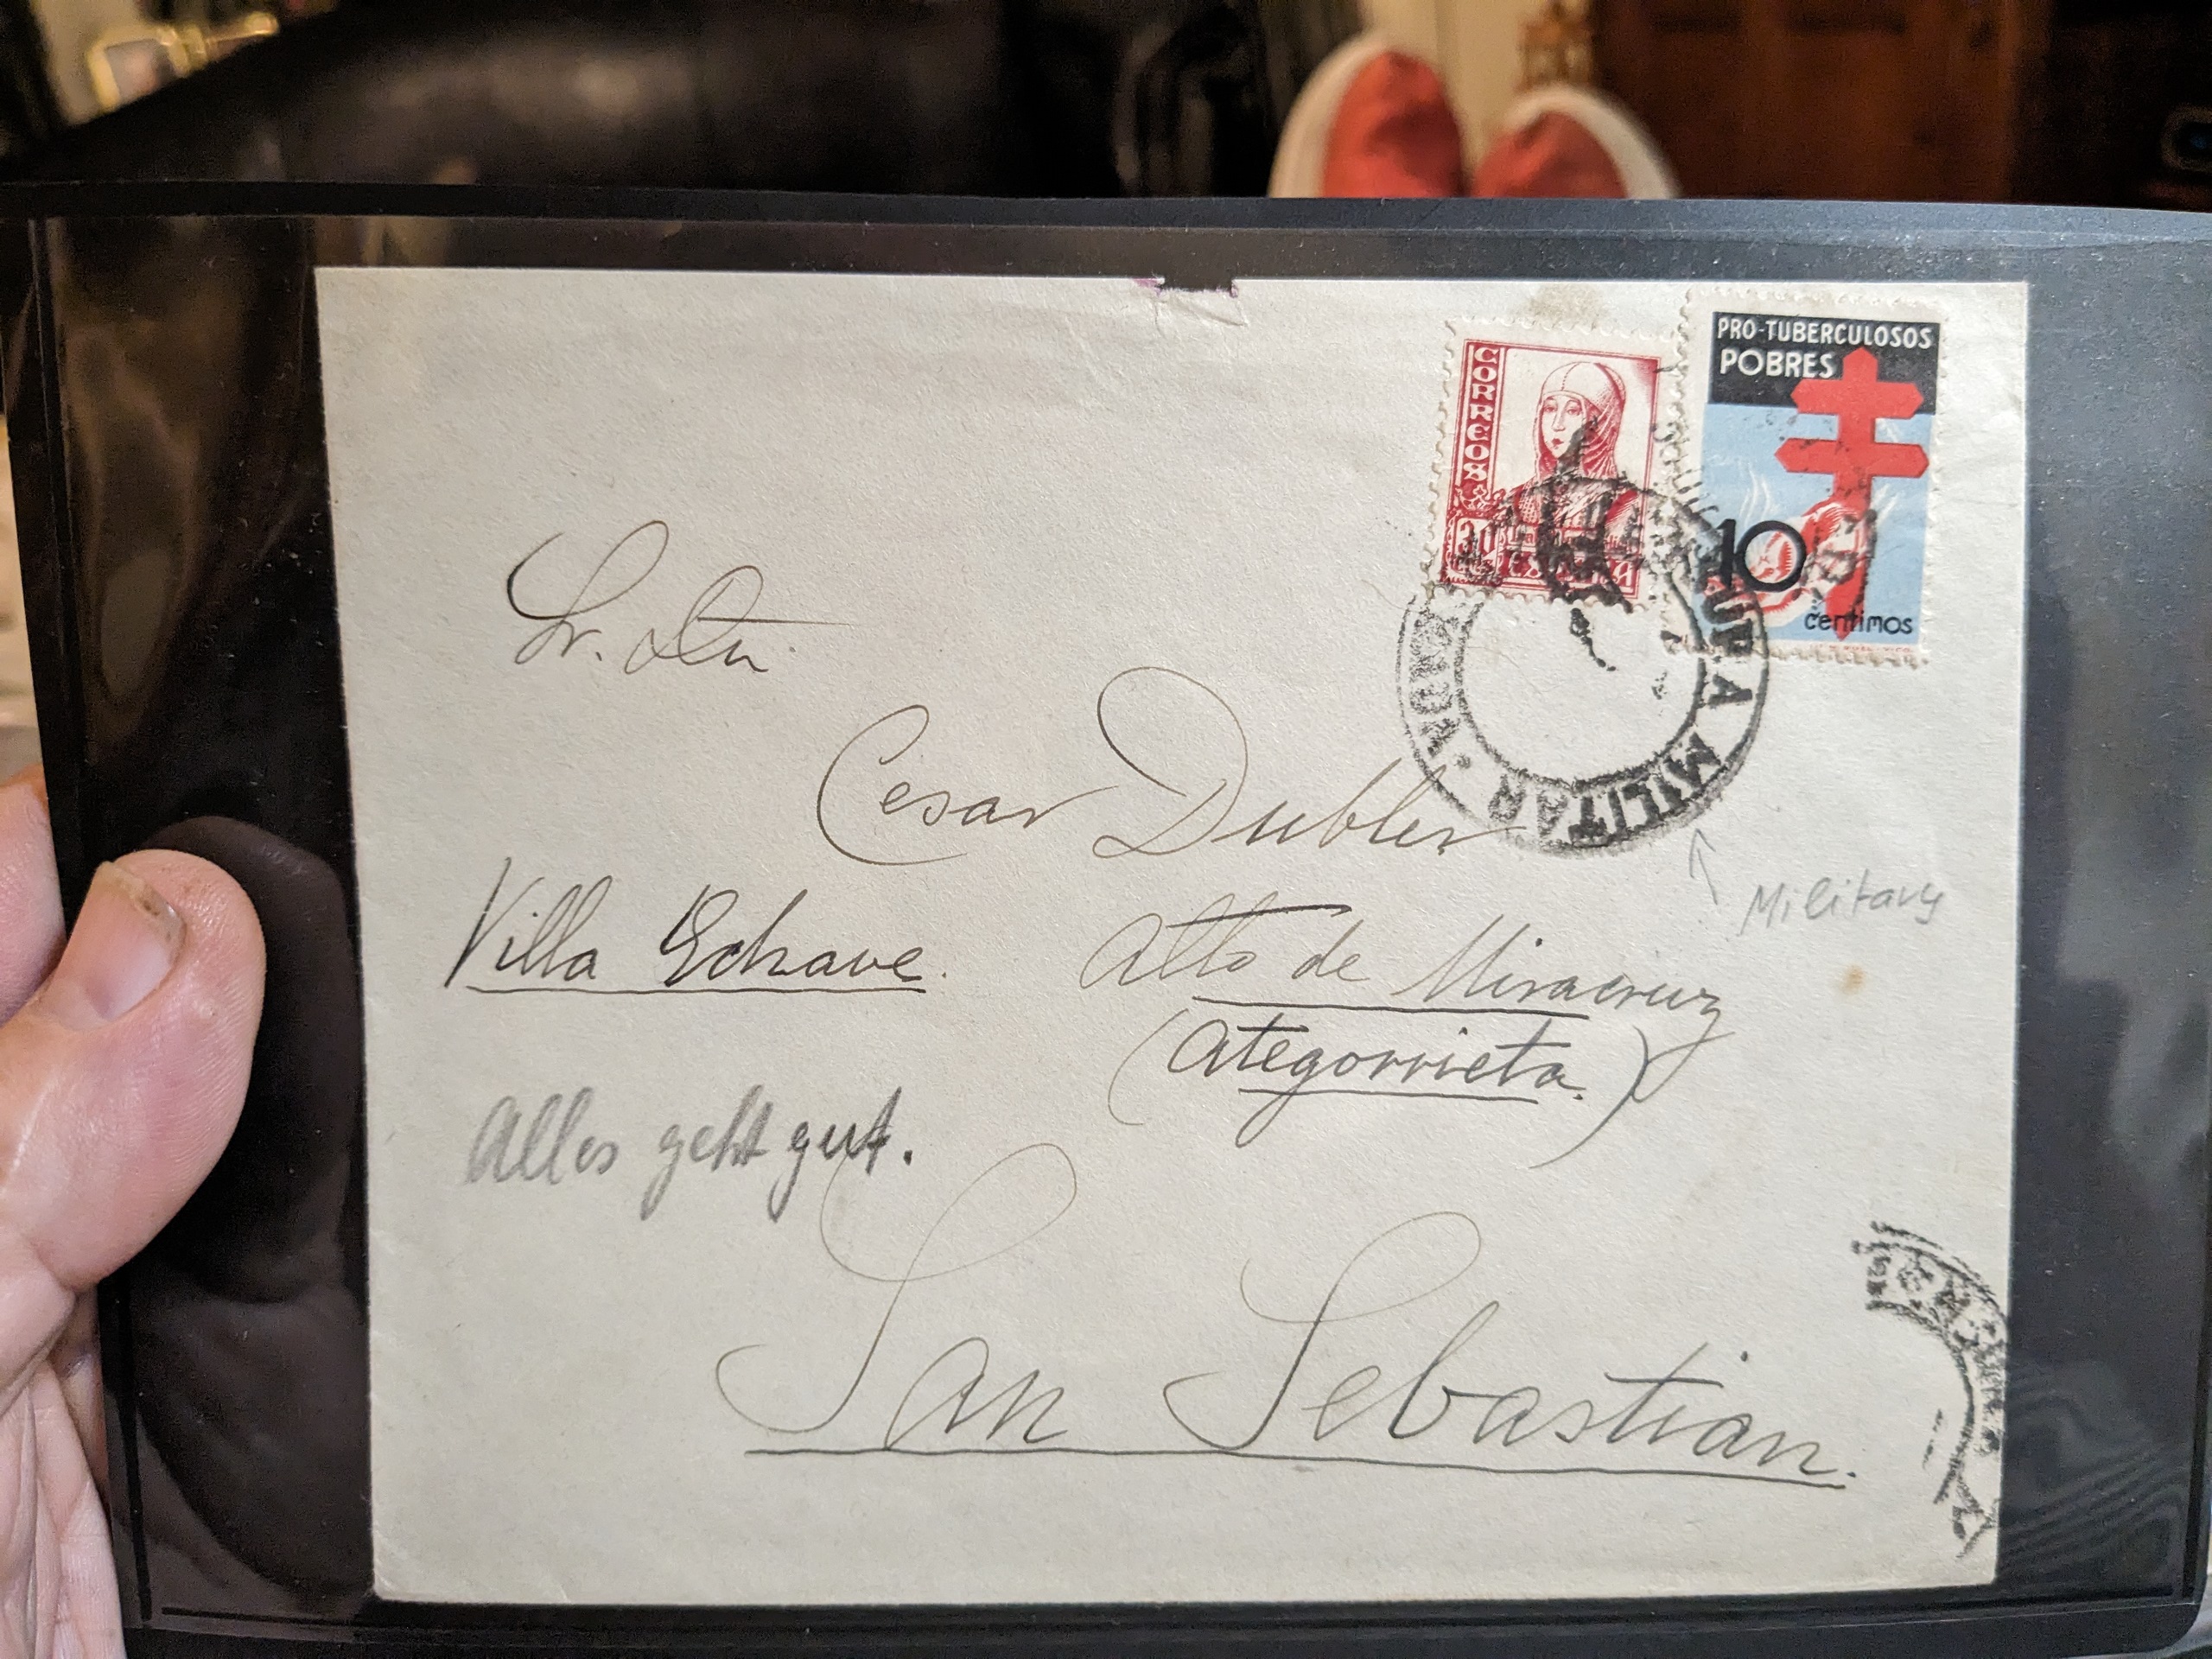 PRO-TUBERCULOSOS
POBRES
10
centimos
CORREOS
30
ESPAÑA
MILITAR
Military
Sr. Dn.
Cesar Dubler
Villa Echave. Alto de Miracruz
(Ategorrieta.)
Alles geht gut.
San Sebastian.